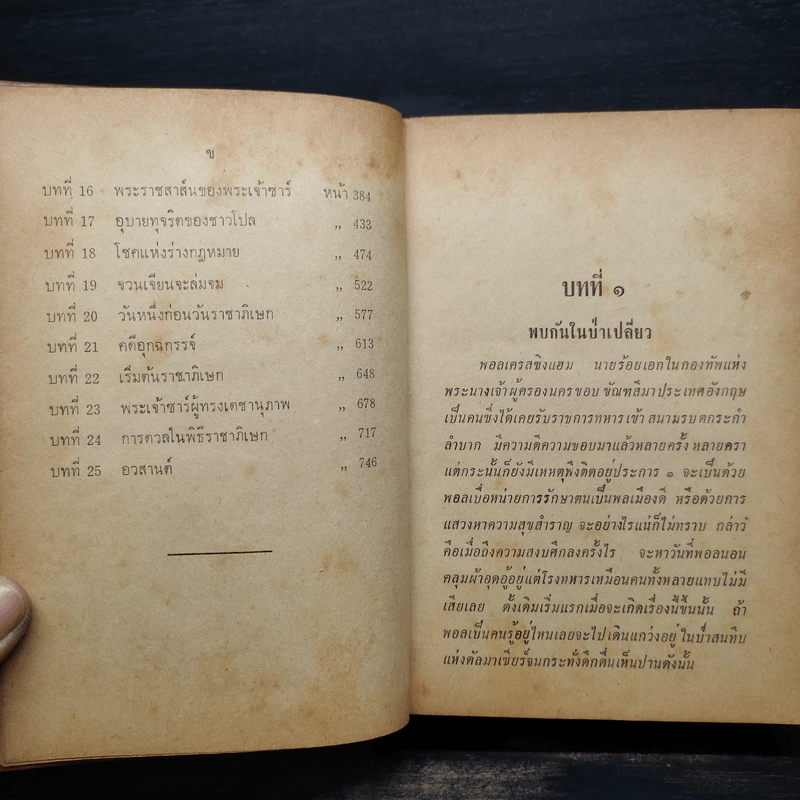 ข
บทที่ 16 พระราชสาส์นของพระเจ้าซาร์ หน้า 384
บทที่ 17 อุบายทุจริตของชาวโปล „ 433
บทที่ 18 โชคแห่งร่างกฎหมาย „ 474
บทที่ 19 จวนเจียนจะล่มจม „ 522
บทที่ 20 วันหนึ่งก่อนวันราชาภิเษก „ 577
บทที่ 21 คดีอุกฉกรรจ์ „ 613
บทที่ 22 เริ่มต้นราชาภิเษก „ 648
บทที่ 23 พระเจ้าซาร์ผู้ทรงเดชานุภาพ „ 678
บทที่ 24 การดวลในพิธีราชาภิเษก „ 717
บทที่ 25 อวสานต์ „ 746
บทที่ ๑
พบกันในป่าเปลี่ยว
พอลเครสซิงแฮม นายร้อยเอกในกองทัพแห่ง
พระนางเจ้าผู้ครองนครขอบขัณฑสีมาประเทศอังกฤษ
เป็นคนซึ่งได้เคยรับราชการทหารเข้าสนามรบตกระกำ
ลำบาก มีความดีความชอบมาแล้วหลายครั้งหลายครา
แต่กระนั้นก็ยังมีเหตุพึงติดอยู่ประการ ๑ จะเป็นด้วย
พอลเบื่อหน่ายการรักษาตนเป็นพลเมืองดี หรือด้วยการ
แสวงหาความสุขสำราญ จะอย่างไรแน่ก็ไม่ทราบ กล่าว
คือเมื่อถึงความสงบศึกลงครั้งไร จะหาวันที่พอลนอน
คลุมผ้าอุดอู้อยู่แต่โรงทหารเหมือนคนทั้งหลายแทบไม่มี
เสียเลย ดั้งเดิมเริ่มแรกเมื่อจะเกิดเรื่องนี้ขึ้นนั้น ถ้า
พอลเป็นคนรู้อยู่ไหนเลยจะไปเดินแกว่งอยู่ในป่าสนทึบ
แห่งดัลมาเซียร์จนกระทั่งดึกดื่นเห็นปานดังนั้น